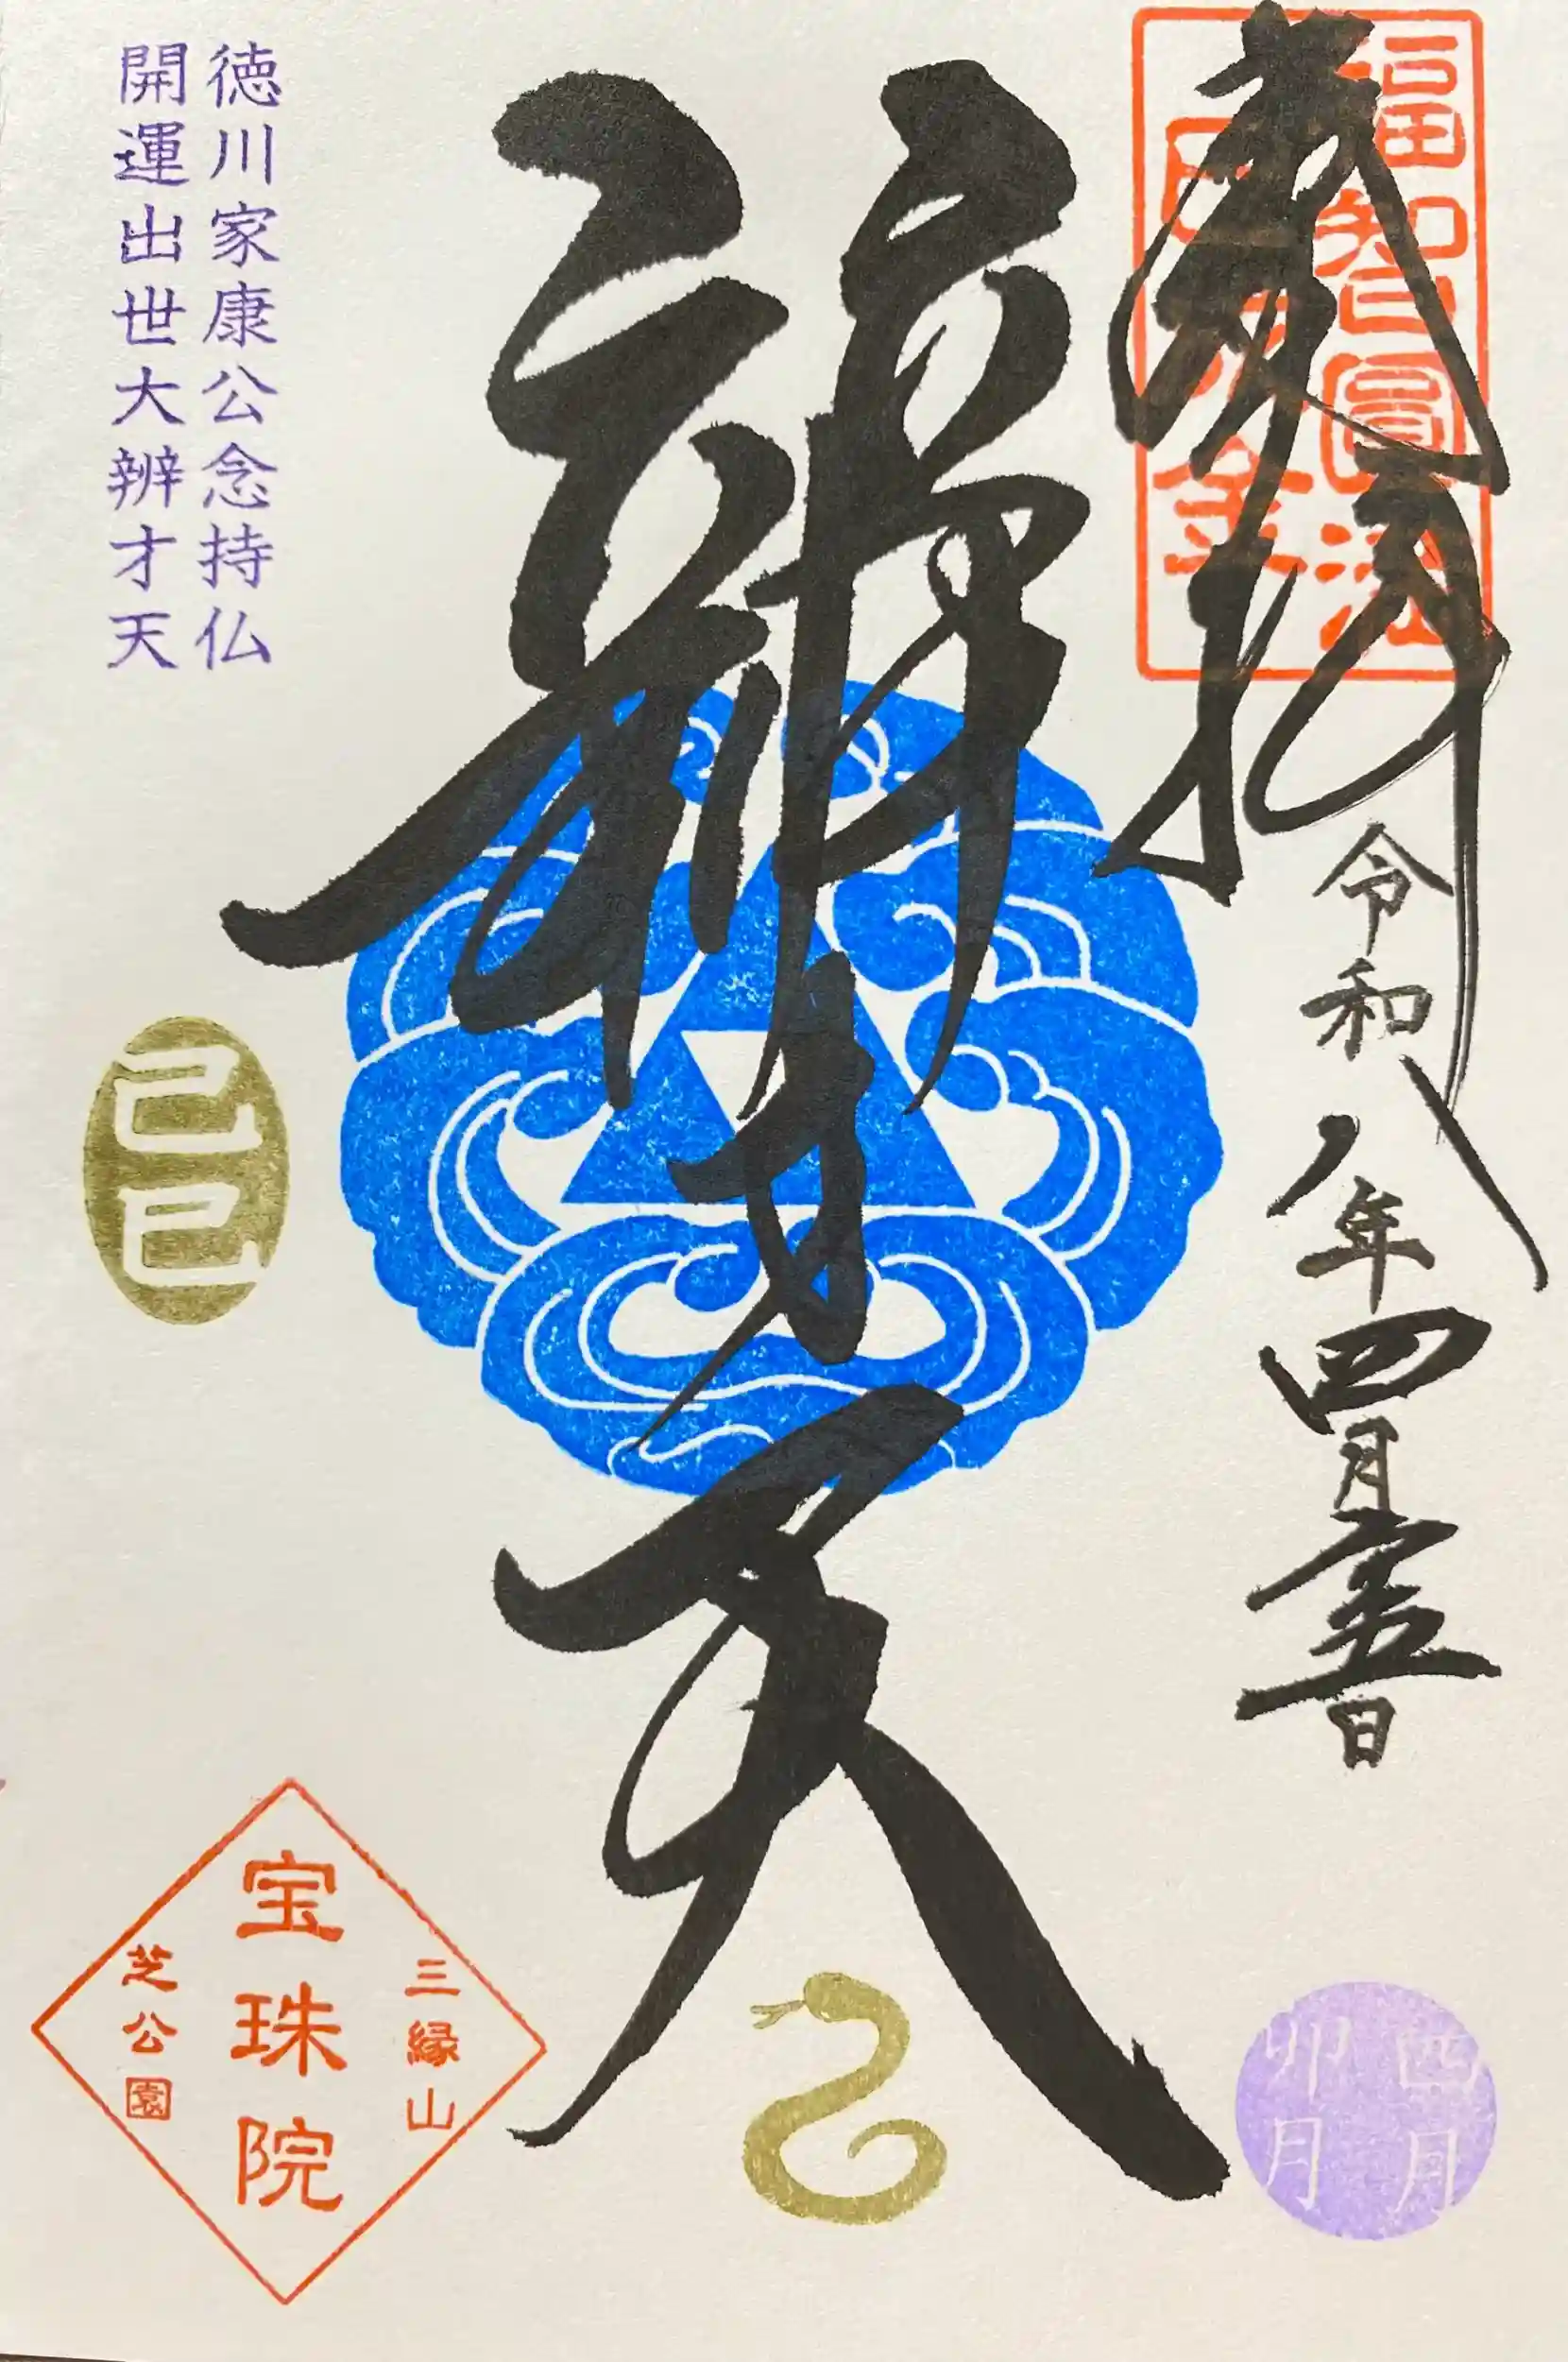 奉拝
令和八年四月二十五日
辨才天
徳川家康公念持仏
開運出世大辨才天
己巳
三縁山
宝珠院
芝公園
四月
卯月